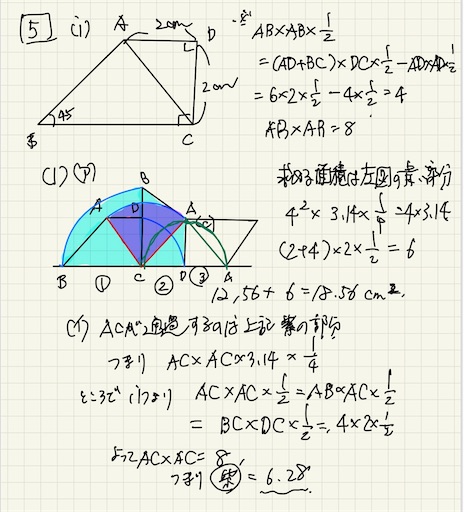 5 (i)
A 2cm D
2cm
B 45 C
AB×AB×1/2
=(AD+BC)×DC×1/2-AD×AD×1/2
=6×2×1/2-4×1/2=4
AB×AB=8
(1)(ア)
B
A D A
B C D A
① ② ③
求める面積は左図の青い部分
4²×3.14×1/4=4×3.14
(2+4)×2×1/2=6
12.56+6=18.56cm²
(イ) ACが通過するのは上記紫の部分
つまり AC×AC×3.14×1/4
ところで (i)より AC×AC×1/2=AB×AC×1/2
=BC×DC×1/2=4×2×1/2
よってAC×AC=8
つまり 紫=6.28